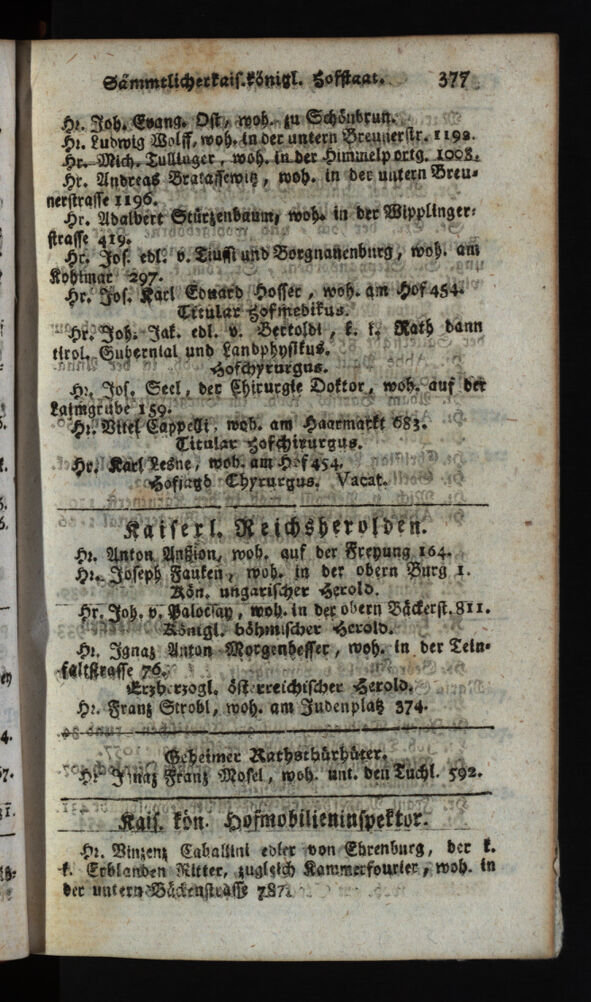 Sämmtlicher kais. königl. Hofstaat. 377
Hr. Joh. Evang. Ost, woh. zu Schönbrun.
Hr. Ludwig Wolff, woh. in der untern Breunerstr. 1192.
Hr. Mich. Tullinger, woh. in der Himmelportg. 1008.
Hr. Andreas Bratassewitz, woh. in der untern Breu-
nerstrasse 1196.
Hr. Adalbert Stürzenbaum, woh. in der Wipplinger-
strasse 419.
Hr. Jos. edl. v. und Borgnanenburg, woh. am
Kohlmar 297.
Hr. Jos. Karl Eduard Hosser, woh. am Hof 454.
Titular Hofmedikus.
Hr. Joh. Jak. edl. v. Bertoldi, k. k. Rath dann
tirol. Gubernial und Landphysikus.
Hofchyrurgus.
Hr. Jos. Seel, der Chirurgie Doktor, woh. auf der
Laimgrube 159.
Hr. Vitel Cappelli, woh. am Haarmarkt 683.
Titular Hofchirurgus.
Hr. Karl Lesne, woh. am Hof 454.
Hofjagd Chyrurgus. Vacat.
Kaiserl. Reichsherolden.
Hr. Anton woh. auf der Freyung 164.
Hr. Joseph Fauken, woh. in der obern Burg 1.
Kön. ungarischer Herold.
Hr. Joh. v. Palotsay, woh. in der obern Bäckerst. 811.
Königl. böhmischer Herold.
Hr. Ignaz Anton Morgenbesser, woh. in der Tein-
faltstrasse 76.
Erzherzogl. österreichischer Herold.
Hr. Franz Strobl, woh. am Judenplatz 374.
Geheimer Rathsthürhüter.
Hr. Ignaz Franz Mosel, woh. unt. den Tuchl. 592.
Kais. kön. Hofmobilieninspektor.
Hr. Vinzenz Caballini edler von Ehrenburg, der k.
k. Erblanden Ritter, zugleich Kammerfourier, woh. in
der untern Bäckenstrasse 787.